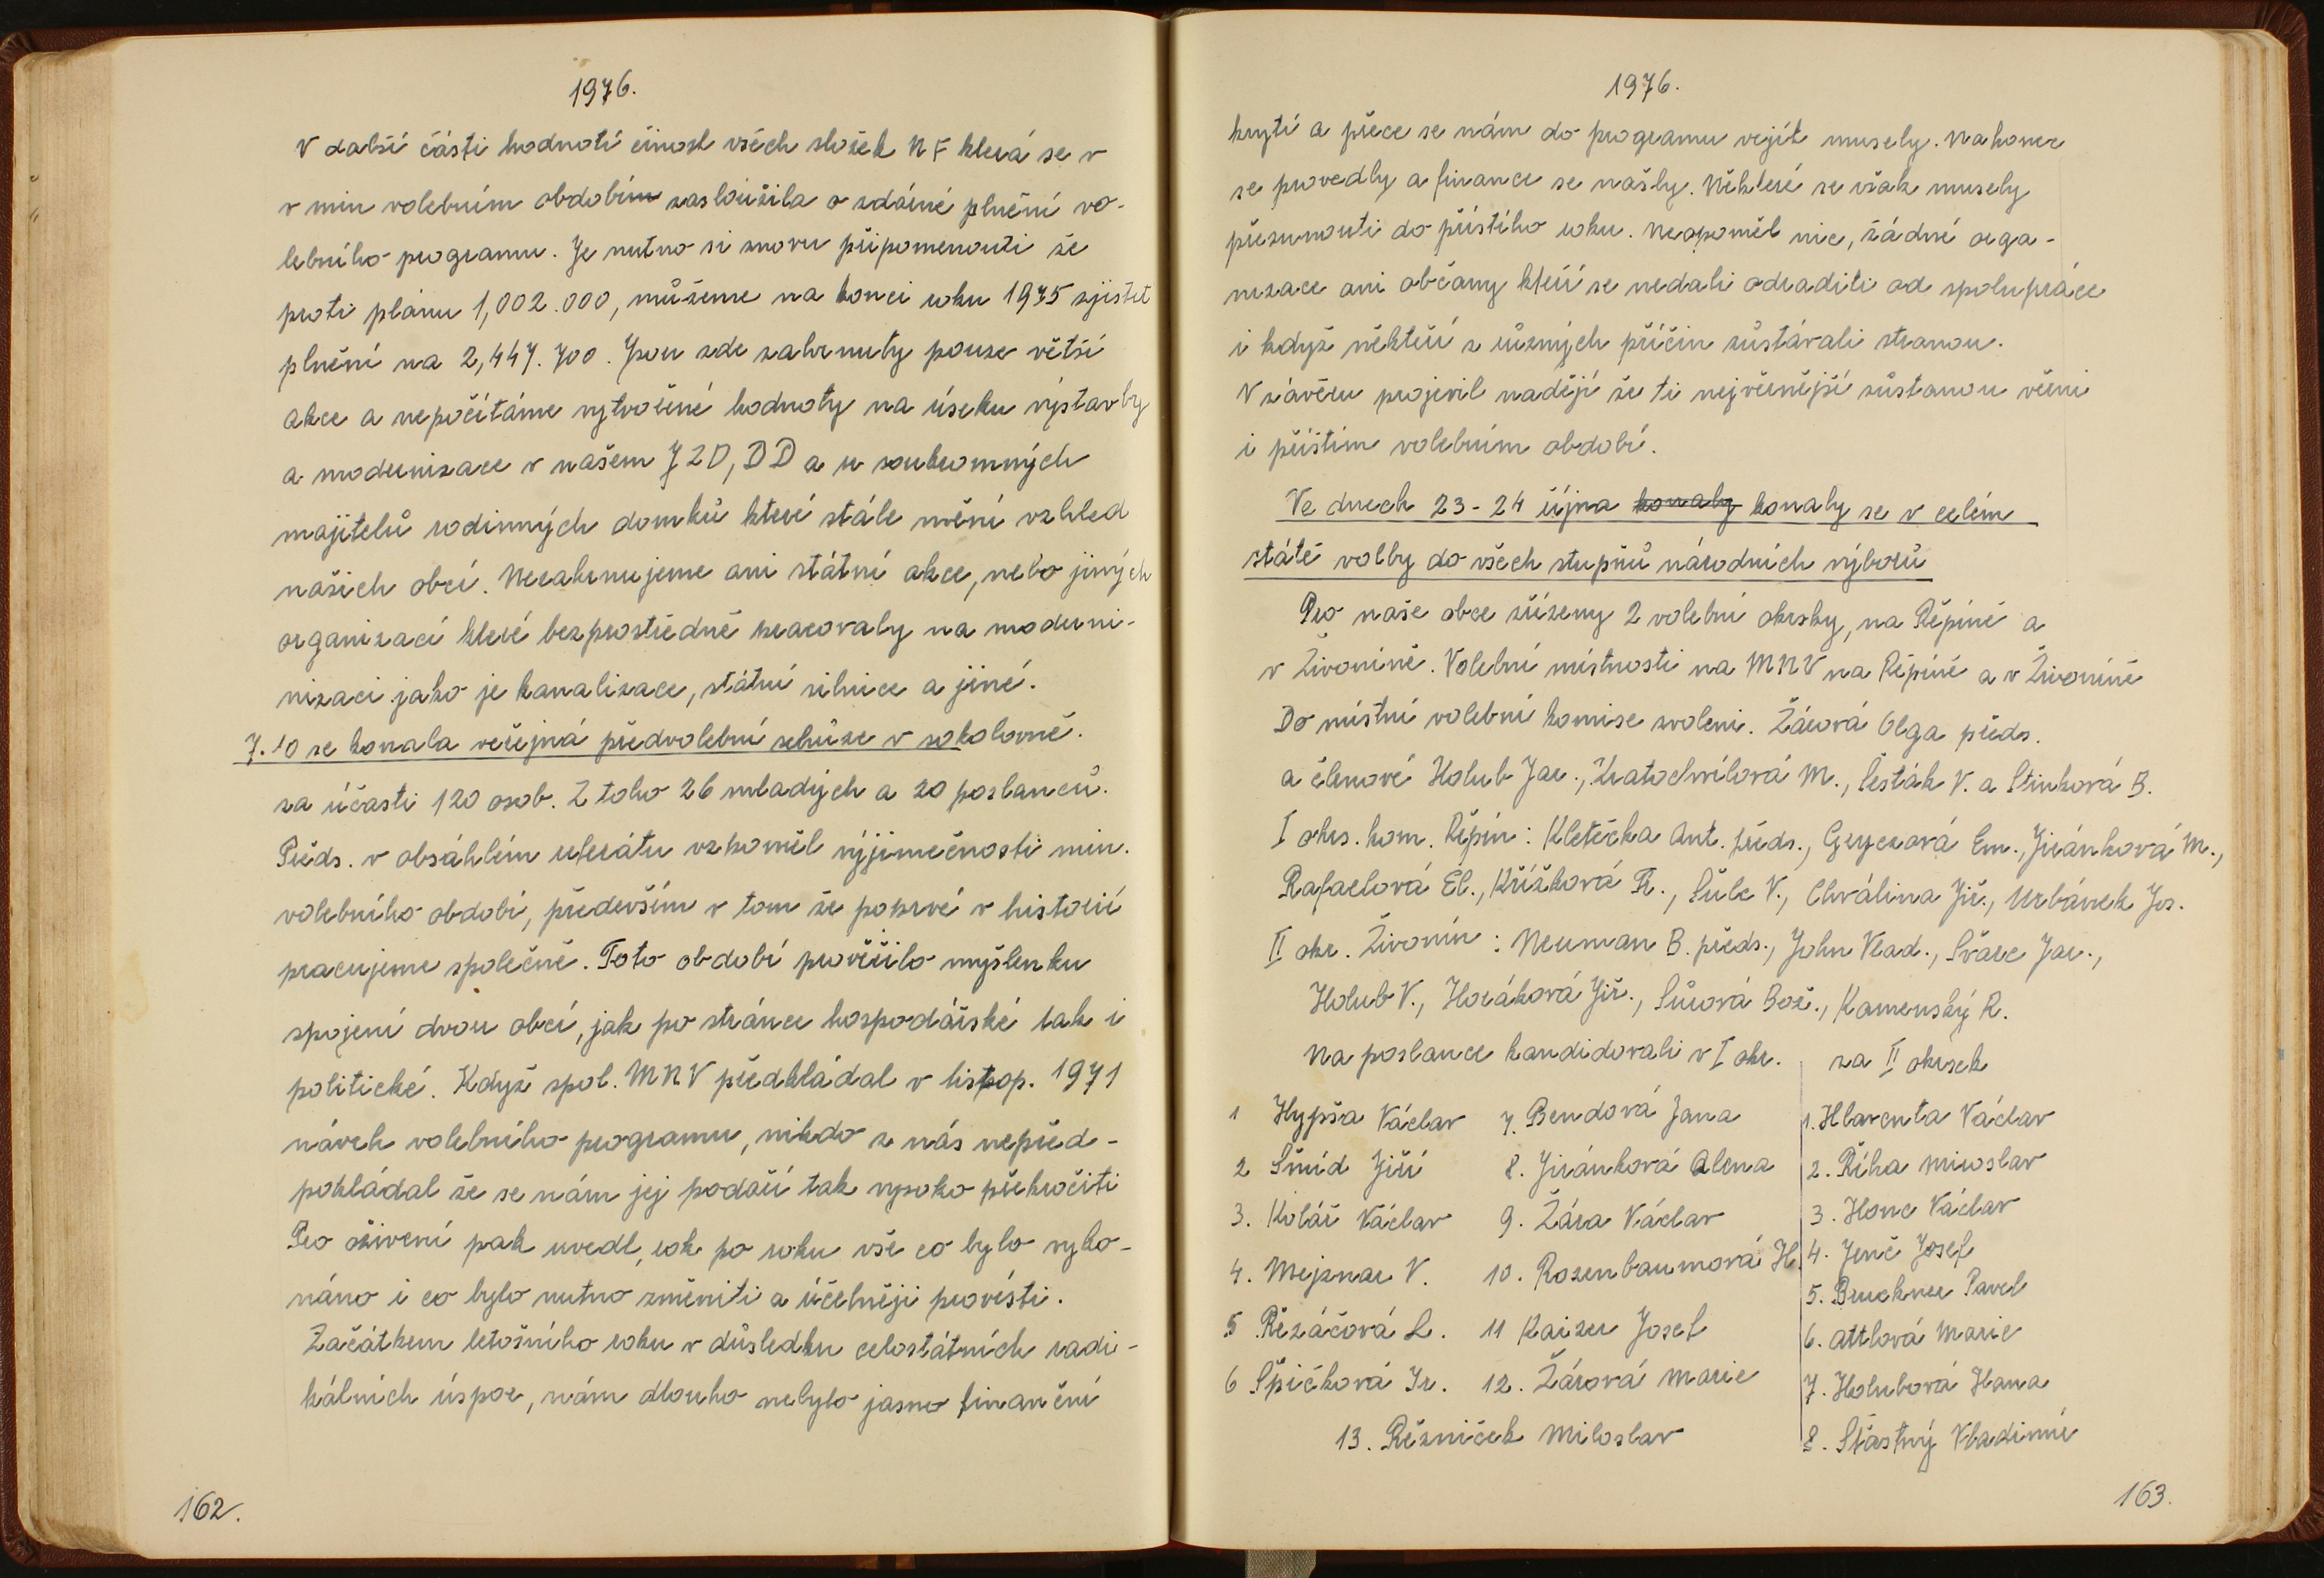 1976.
V další části hodnotí činost všech složek NF která se v
v min volebním obdobím zasloužila o zdárné plnění vo-
lebního programu. Je nutno si znovu připomenouti že
proti plánu 1,002.000, můžeme na konci roku 1975 zjistit
plnění na 2,447.700. Jsou zde zahrnuty pouze větší
akce a nepočítáme vytvořené hodnoty na úseku výstavby
a modernizace v našem JZD, DD a u soukromných
majitelů rodinných domků které stále mění vzhled
našich obcí. Nezahrnujeme ani státní akce, nebo jiných
organizací které bezprostředně pracovaly na moderni-
nizaci jako je kanalizace, státní silnice a jiné.
7.10 se konala veřejná předvolební schůze v sokolovně.
za účasti 120 osob. Z toho 26 mladých a 20 poslanců.
Předs. v obsáhlém referátu vzpoměl výjimečnosti min.
volebního období, především v tom že poprvé v historii
pracujeme společně. Toto období prověřilo myšlenku
spojení dvou obcí, jak po stránce hospodářské tak i
politické. Když spol. MNV předkládal v listop. 1971
návrh volebního programu, nikdo z nás nepřed-
pokládal že se nám jej podaří tak vysoko překročiti
Pro oživení pak uvedl, rok po roku vše co bylo vyko-
náno i co bylo nutno změniti a účelněji provésti.
Začátkem letošního roku v důsledku celostátních radi-
kálních úspor, nám dlouho nebylo jasno finanční
162.
1976.
krytí a přece se nám do programu vejít musely. Nakonec
se provedly a finance se našly. Některé se však musely
přesunouti do příštího roku. Neopoměl nic, žádné orga-
nizace ani občany kteří se nedali odraditi od spolupráce
i když někteří z různých příčin zůstávali stranou.
V závěru projevil naději že ti nejvěrnější zůstanou věrni
i příštím volebním období.
Ve dnech 23-24 října konaly konaly se v celém
státě volby do všech stupňů národních výborů
Pro naše obce zřízeny 2 volební okrsky, na Řepíně a
v Živoníně. Volební místnosti na MNV na Řepíně a v Živoníně
Do místní volební komise zvoleni. Žárová Olga předs.
a členové Holub Jar., Kratochvílová M., Šesták V. a Stinková B.
I okrs. kom. Řepín: Kletečka Ant. předs., Gryczová Em., Jiránková M.,
Rafaelová El., Křížková R., Šulc V., Chválina Jiř., Urbánek Jos.
II okr. Živonín: Neuman B. předs., John Vlad., Švarc Jar.,
Holub V., Horáková Jiř., Sůrová Bož., Kamenský R.
Na poslance kandidovali v I okr. za II okrsek
1 Hypša Václav 7. Bendová Jana 1. Hlaventa Václav
2 Šmíd Jiří 8. Jiránková Alena 2. Říha Miroslav
3. Kolář Václav 9. Žára Václav 3. Honc Václav
4. Mejsnar V. 10. Rosenbaumová H. 4. Jenč Josef
5. Bruckner Pavel
5 Řezáčová L. 11 Kaizer Josef 6. Attlová Marie
6 Špičková Ir. 12. Žárová Marie 7. Holubová Hana
13. Řezníček Miloslav 8. Šťastný Vladimír
163.